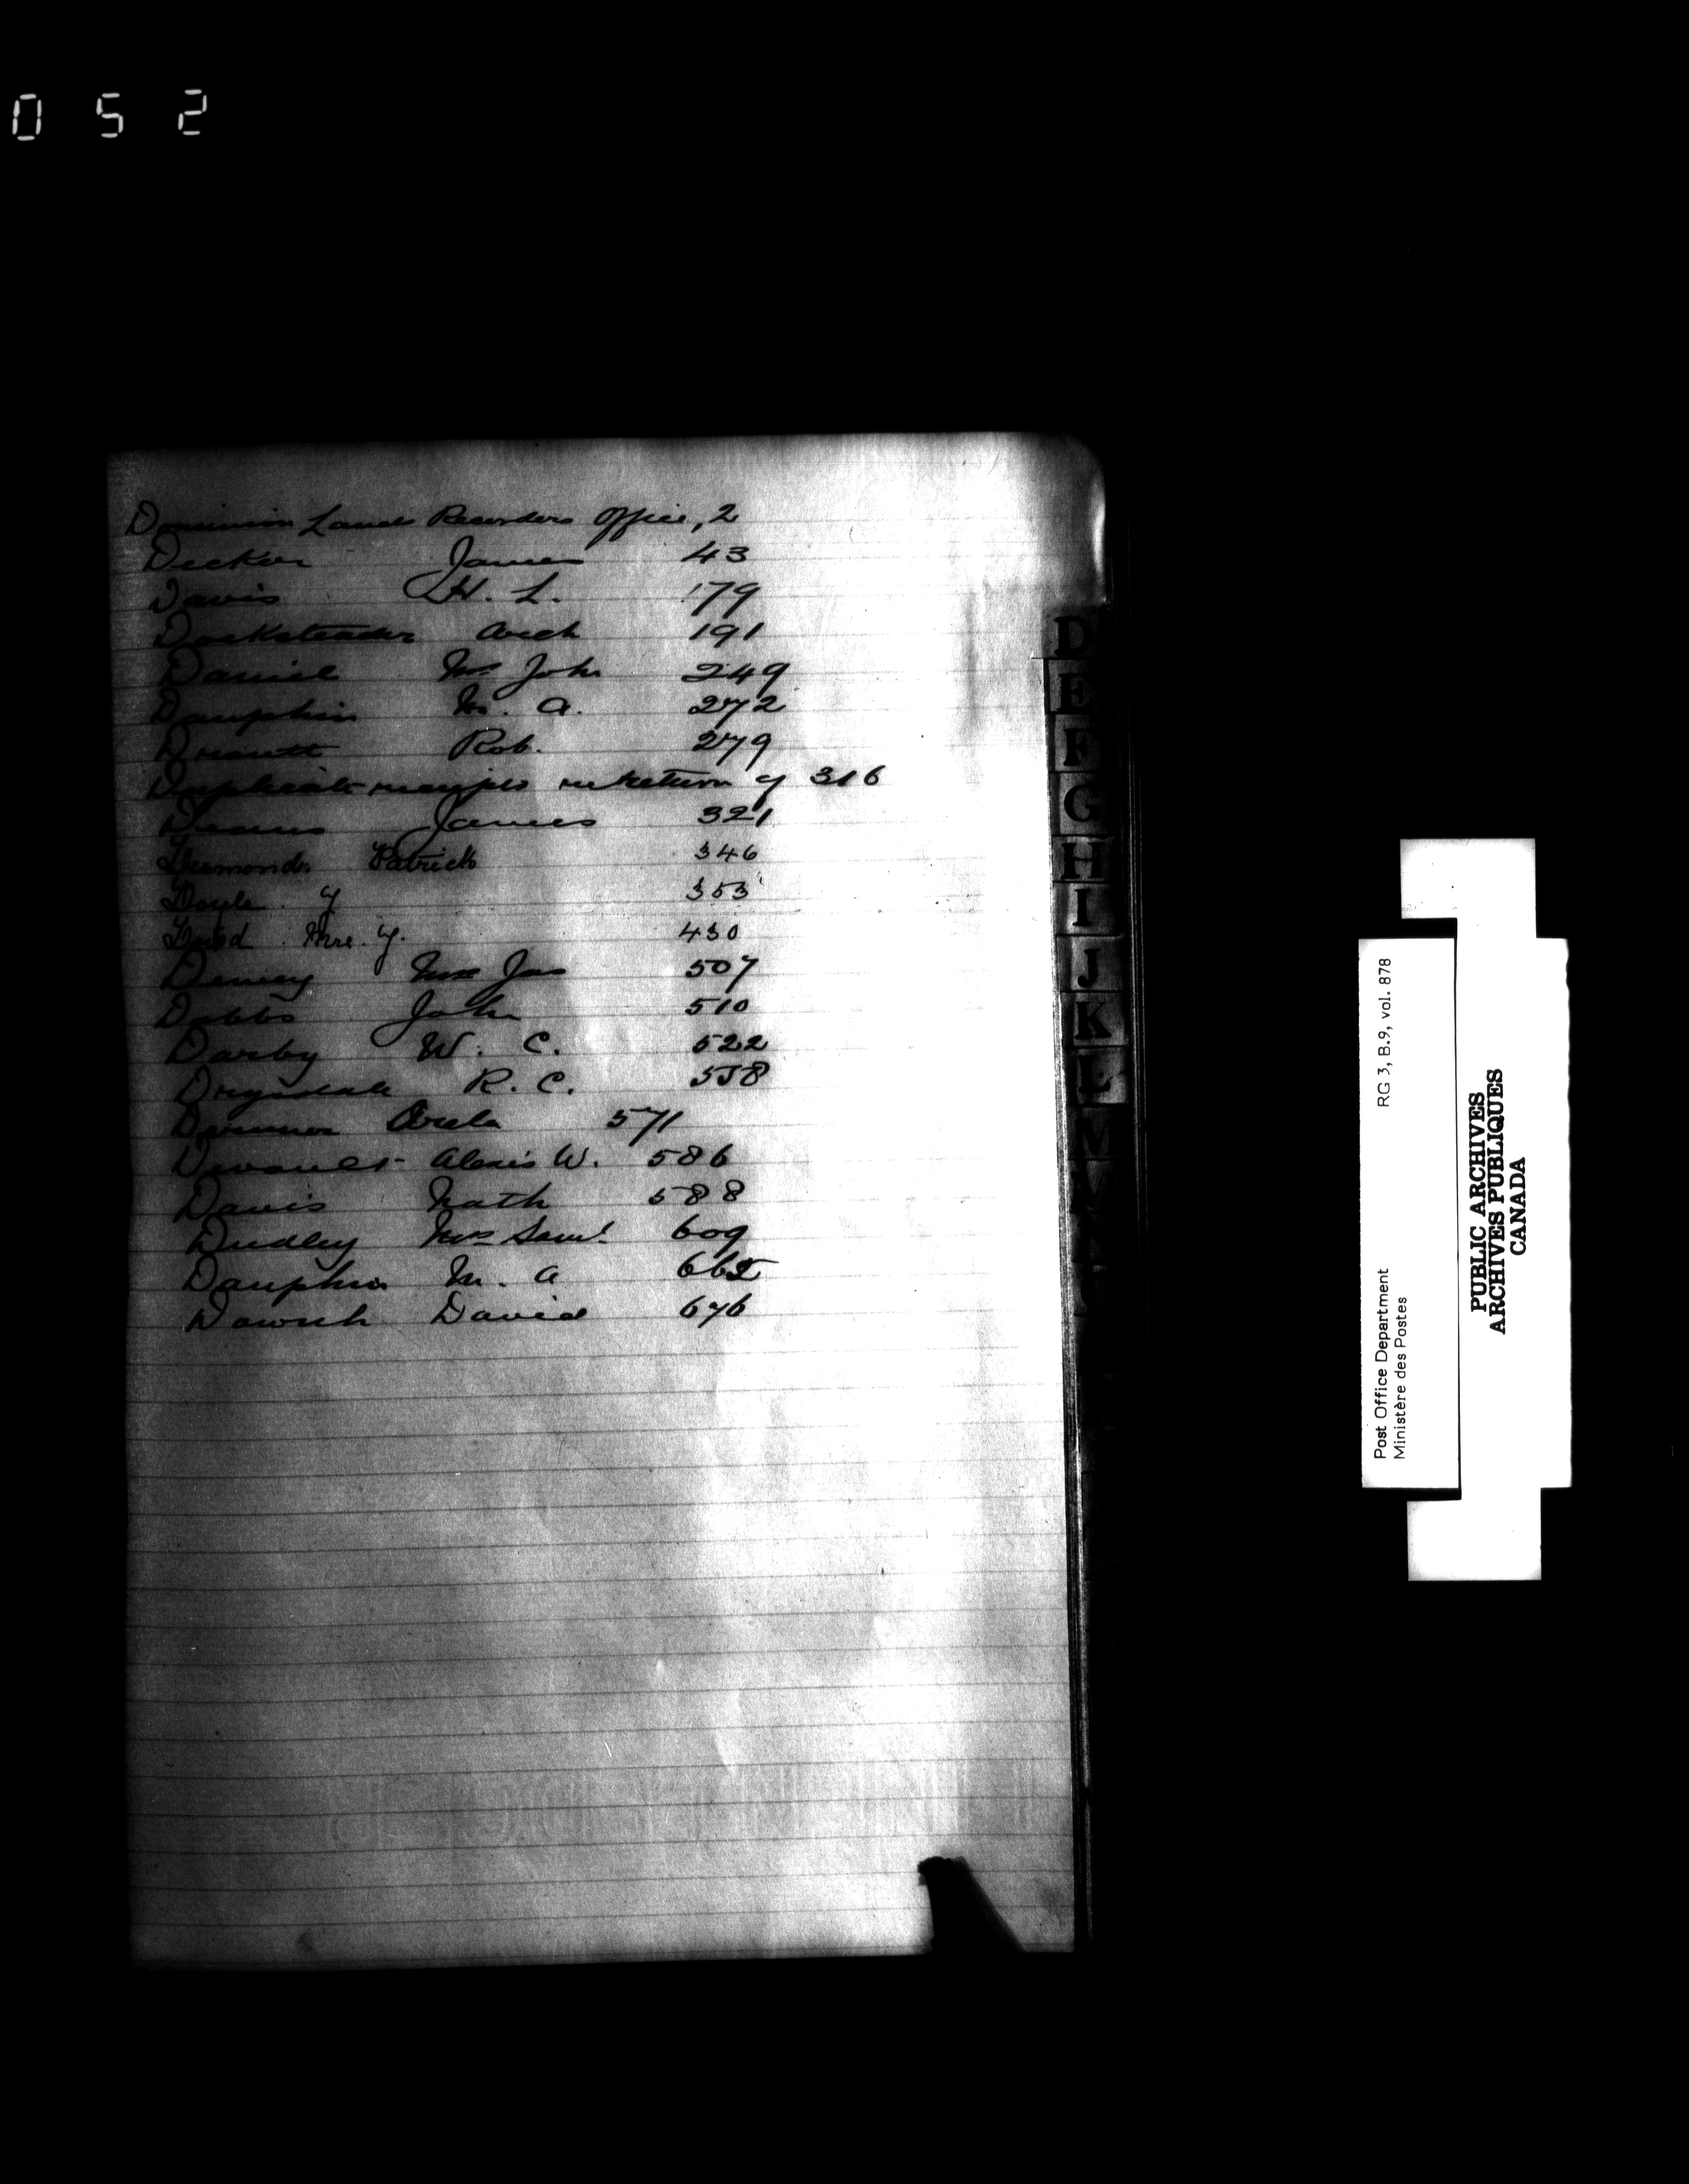 052
Dominion Lands Recorders Office, 2
Decker James 43
Davis H. L. 179
Dockstader Arch 191
Daniel Mrs John 249
Dauphin M. A. 272
Rob. 279
Duplicate receipts re return of 316
Deans James 321
Desmond. Patrick 346
Doyle. J 353
David Mrs. J. 430
Dewey Mrs Jas 507
Dobbs John 510
Darby W. C. 522
Drysdale R. C. 558
571
Alexis W. 586
Davis Nath 588
Dudley Mrs Saml 609
Dauphin M. A 665
David 676
D
E
F
G
H
I
J
K
L
M
Post Office Department RG 3, B.9, vol. 878
Ministère des Postes
PUBLIC ARCHIVES
ARCHIVES PUBLIQUES
CANADA